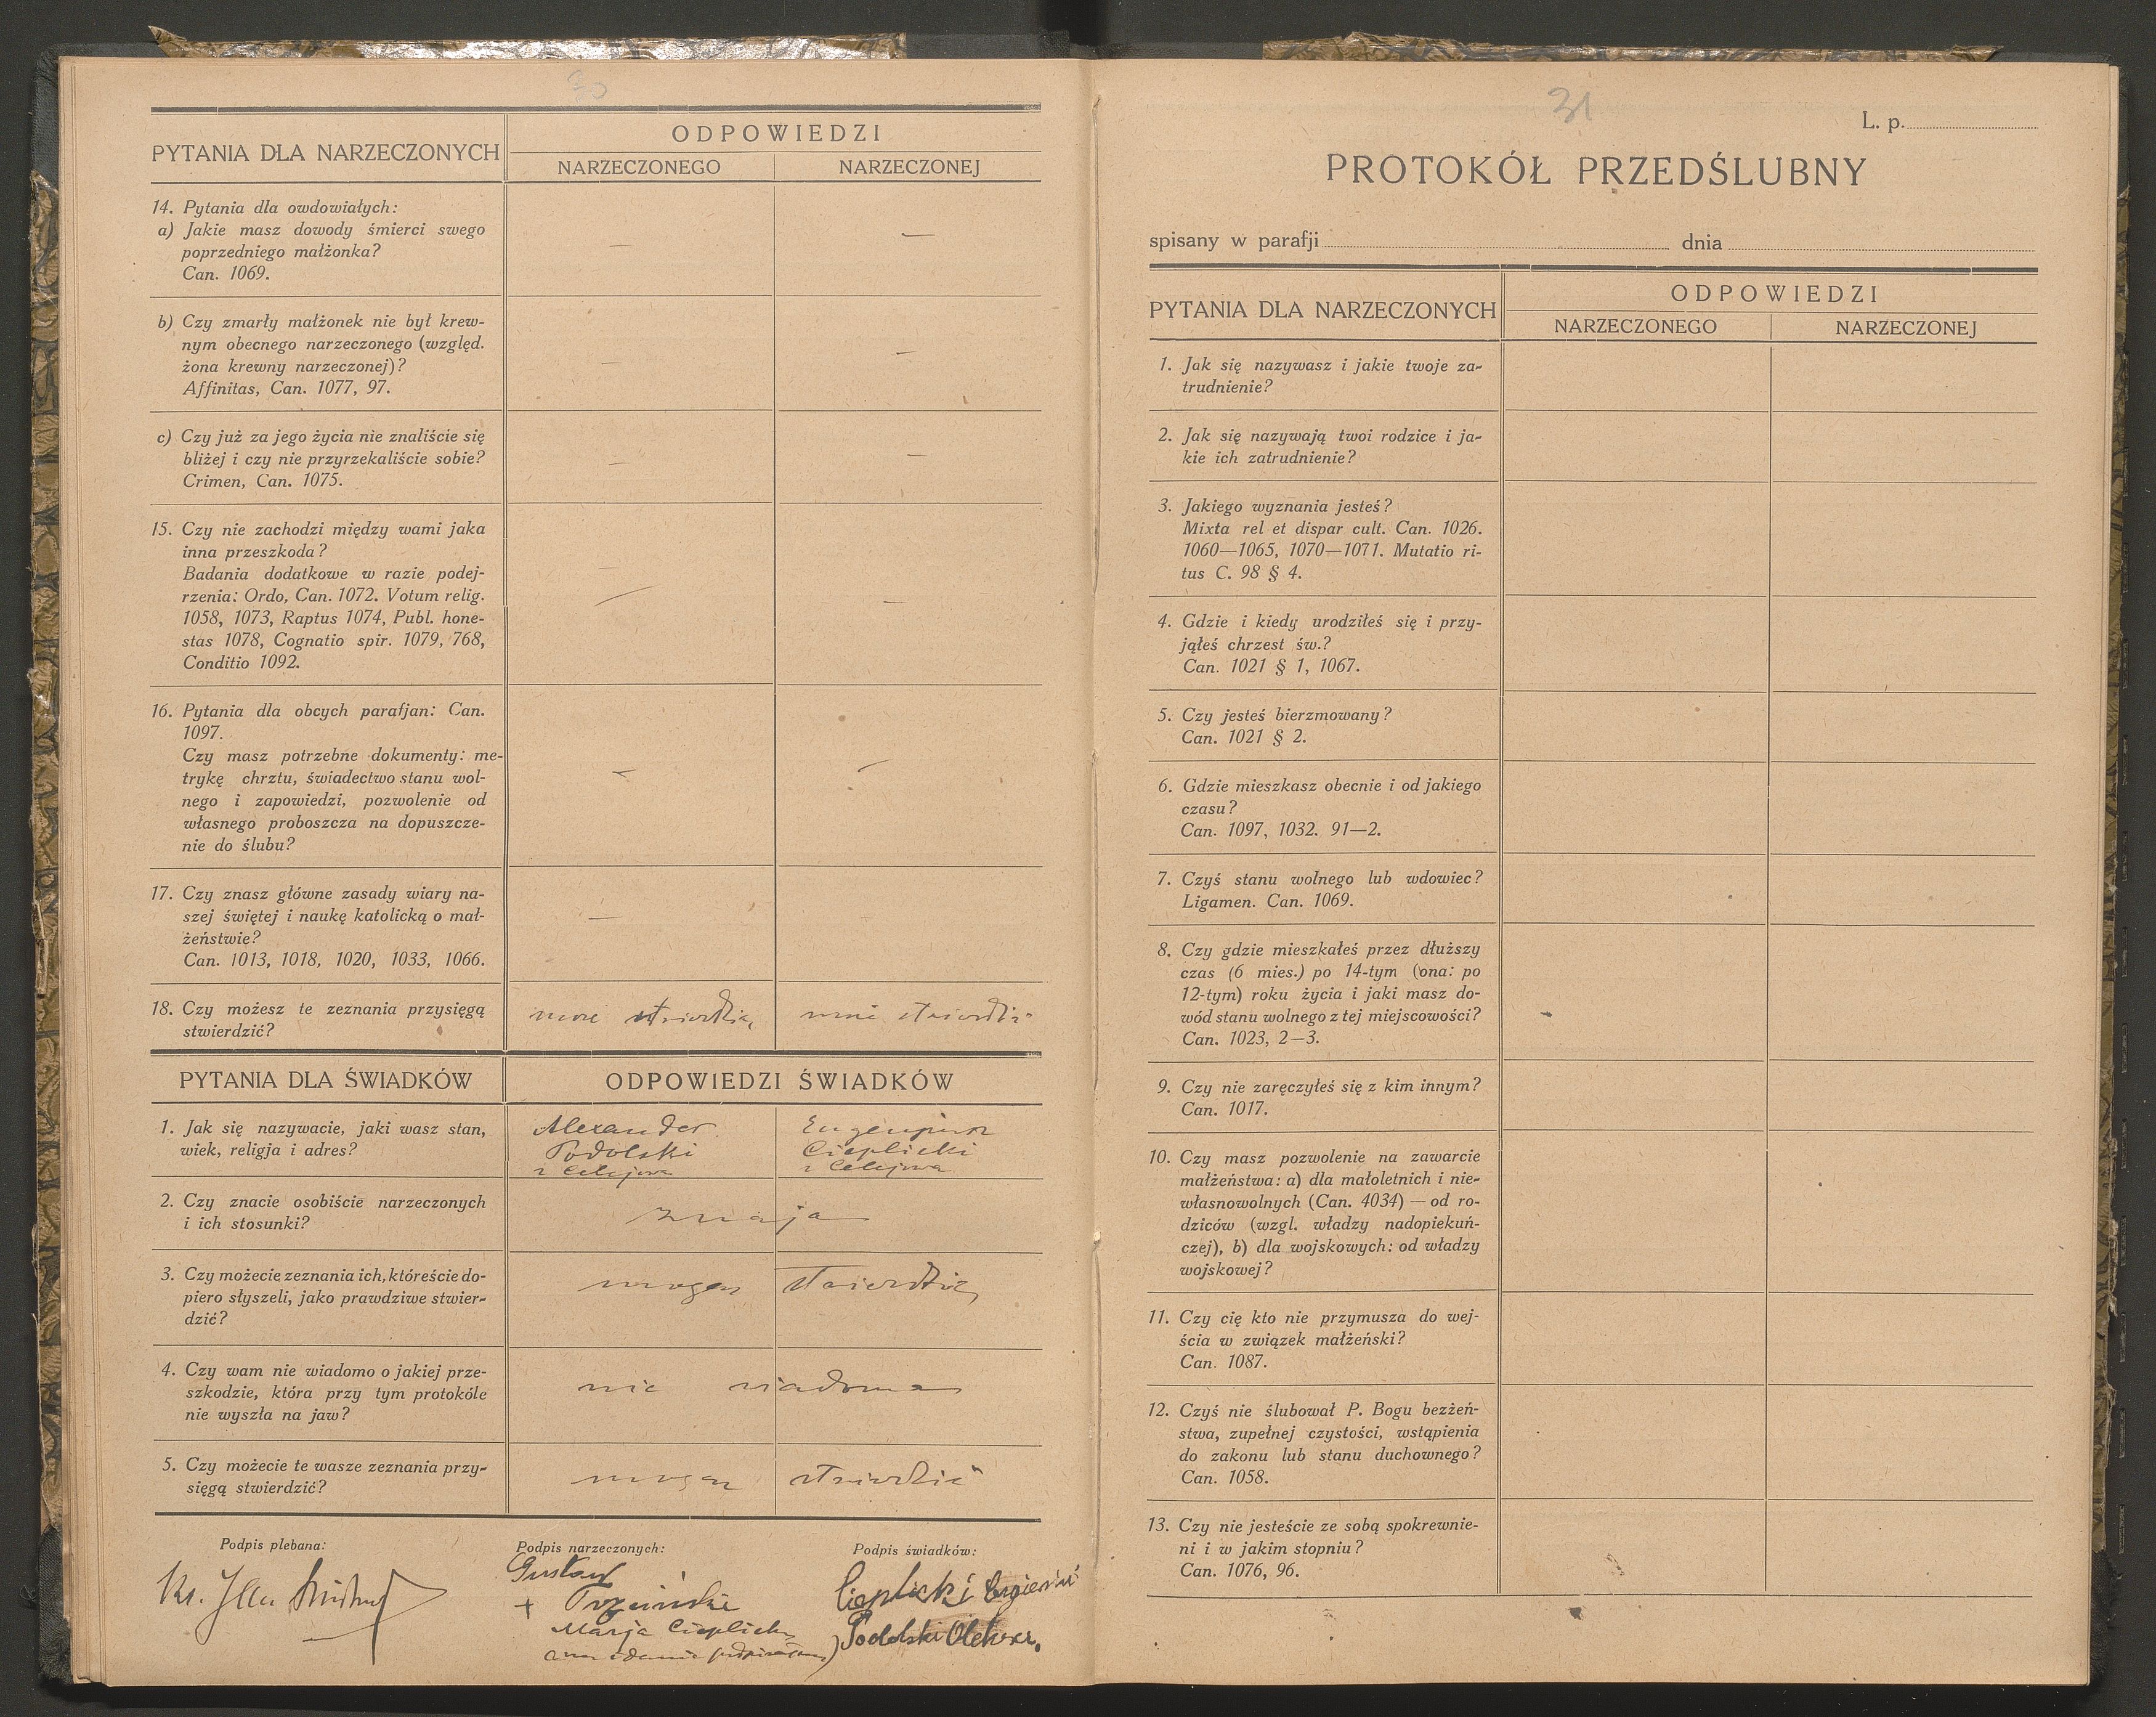 30
PYTANIA DLA NARZECZONYCH
ODPOWIEDZI
NARZECZONEGO
NARZECZONEJ
14. Pytania dla owdowiałych:
a) Jakie masz dowody śmierci swego
poprzedniego małżonka?
Can. 1069.
— —
b) Czy zmarły małżonek nie był krew-
nym obecnego narzeczonego (względ.
żona krewny narzeczonej)?
Affinitas, Can. 1077, 97.
— —
c) Czy już za jego życia nie znaliście się
bliżej i czy nie przyrzekaliście sobie?
Crimen, Can. 1075.
— —
15. Czy nie zachodzi między wami jaka
inna przeszkoda?
Badania dodatkowe w razie podej-
rzenia: Ordo, Can. 1072. Votum relig.
1058, 1073, Raptus 1074, Publ. hone-
stas 1078, Cognatio spir. 1079, 768,
Conditio 1092.
— —
16. Pytania dla obcych parafjan: Can.
1097.
Czy masz potrzebne dokumenty: me-
trykę chrztu, świadectwo stanu wol-
nego i zapowiedzi, pozwolenie od
własnego proboszcza na dopuszcze-
nie do ślubu?
— —
17. Czy znasz główne zasady wiary na-
szej świętej i naukę katolicką o mał-
żeństwie?
Can. 1013, 1018, 1020, 1033, 1066.
—
18. Czy możesz te zeznania przysięgą
stwierdzić?
PYTANIA DLA ŚWIADKÓW
ODPOWIEDZI ŚWIADKÓW
1. Jak się nazywacie, jaki wasz stan,
wiek, religja i adres?
Alexander
Podolski
z Celejowa
Cieplicki
z Celejowa
2. Czy znacie osobiście narzeczonych
i ich stosunki?
znają
3. Czy możecie zeznania ich, któreście do-
piero słyszeli, jako prawdziwe stwier-
dzić?
mogą stwierdzić
4. Czy wam nie wiadomo o jakiej prze-
szkodzie, która przy tym protokóle
nie wyszła na jaw?
nie wiadomo
5. Czy możecie te wasze zeznania przy-
sięgą stwierdzić?
mogą stwierdzić
Podpis plebana:
Ks.
Podpis narzeczonych:
Gustaw
+
Marja Cieplicka
Podpis świadków:
Cieplicki Eugieniu
Podolski
31
L. p.
PROTOKÓŁ PRZEDŚLUBNY
spisany w parafji dnia
PYTANIA DLA NARZECZONYCH
ODPOWIEDZI
NARZECZONEGO
NARZECZONEJ
1. Jak się nazywasz i jakie twoje za-
trudnienie?
2. Jak się nazywają twoi rodzice i ja-
kie ich zatrudnienie?
3. Jakiego wyznania jesteś?
Mixta rel et dispar cult. Can. 1026.
1060—1065, 1070—1071. Mutatio ri-
tus C. 98 § 4.
4. Gdzie i kiedy urodziłeś się i przy-
jąłeś chrzest św.?
Can. 1021 § 1, 1067.
5. Czy jesteś bierzmowany?
Can. 1021 § 2.
6. Gdzie mieszkasz obecnie i od jakiego
czasu?
Can. 1097, 1032. 91—2.
7. Czyś stanu wolnego lub wdowiec?
Ligamen. Can. 1069.
8. Czy gdzie mieszkałeś przez dłuższy
czas (6 mies.) po 14-tym (ona: po
12-tym) roku życia i jaki masz do-
wód stanu wolnego z tej miejscowości?
Can. 1023, 2—3.
9. Czy nie zaręczyłeś się z kim innym?
Can. 1017.
10. Czy masz pozwolenie na zawarcie
małżeństwa: a) dla małoletnich i nie-
własnowolnych (Can. 4034) — od ro-
dziców (wzgl. władzy nadopiekuń-
czej), b) dla wojskowych: od władzy
wojskowej?
11. Czy cię kto nie przymusza do wej-
ścia w związek małżeński?
Can. 1087.
12. Czyś nie ślubował P. Bogu bezżeń-
stwa, zupełnej czystości, wstąpienia
do zakonu lub stanu duchownego?
Can. 1058.
13. Czy nie jesteście ze sobą spokrewnie-
ni i w jakim stopniu?
Can. 1076, 96.